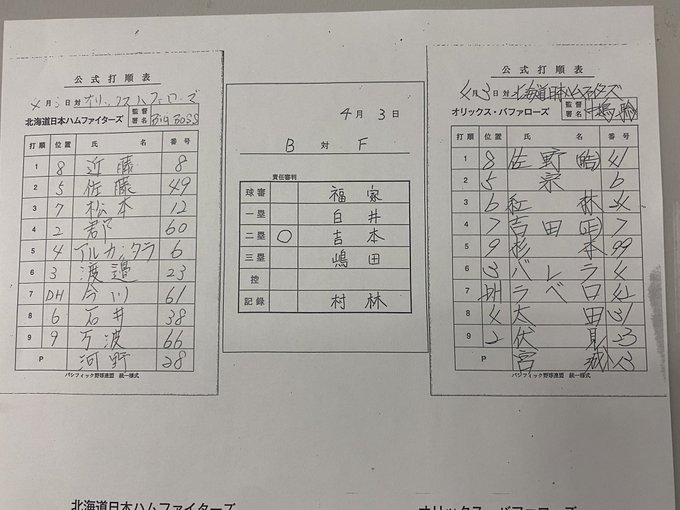 公式打順表
4月3日対オリックスバファローズ
北海道日本ハムファイターズ 監督署名 BIG BOSS
打順 位置 氏名 番号
1 8 近藤 8
2 5 佐藤 49
3 7 松本 12
4 2 君 60
5 4 アルカンタラ 6
6 3 渡邉 23
7 DH 今川 61
8 6 石井 38
9 9 万波 66
P 河野 28
パシフィック野球連盟 統一様式
4月3日
B対F
責任審判
球審 福家
一塁 白井
二塁 〇 吉本
三塁 嶋田
控
記録 村林
公式打順表
4月3日対北海道日本ハムファイターズ
オリックス・バファローズ 監督署名
打順 位置 氏名 番号
1 8 佐野皓 41
2 5 宗 6
3 6 紅林 24
4 7 吉田正 7
5 9 杉本 99
6 3 バレラ 4
7 DH ラベロ 42
8 4 太田 31
9 2 伏見 23
P 宮城 13
パシフィック野球連盟 統一様式
北海道日本ハムファイターズ
オリックス・バファローズ